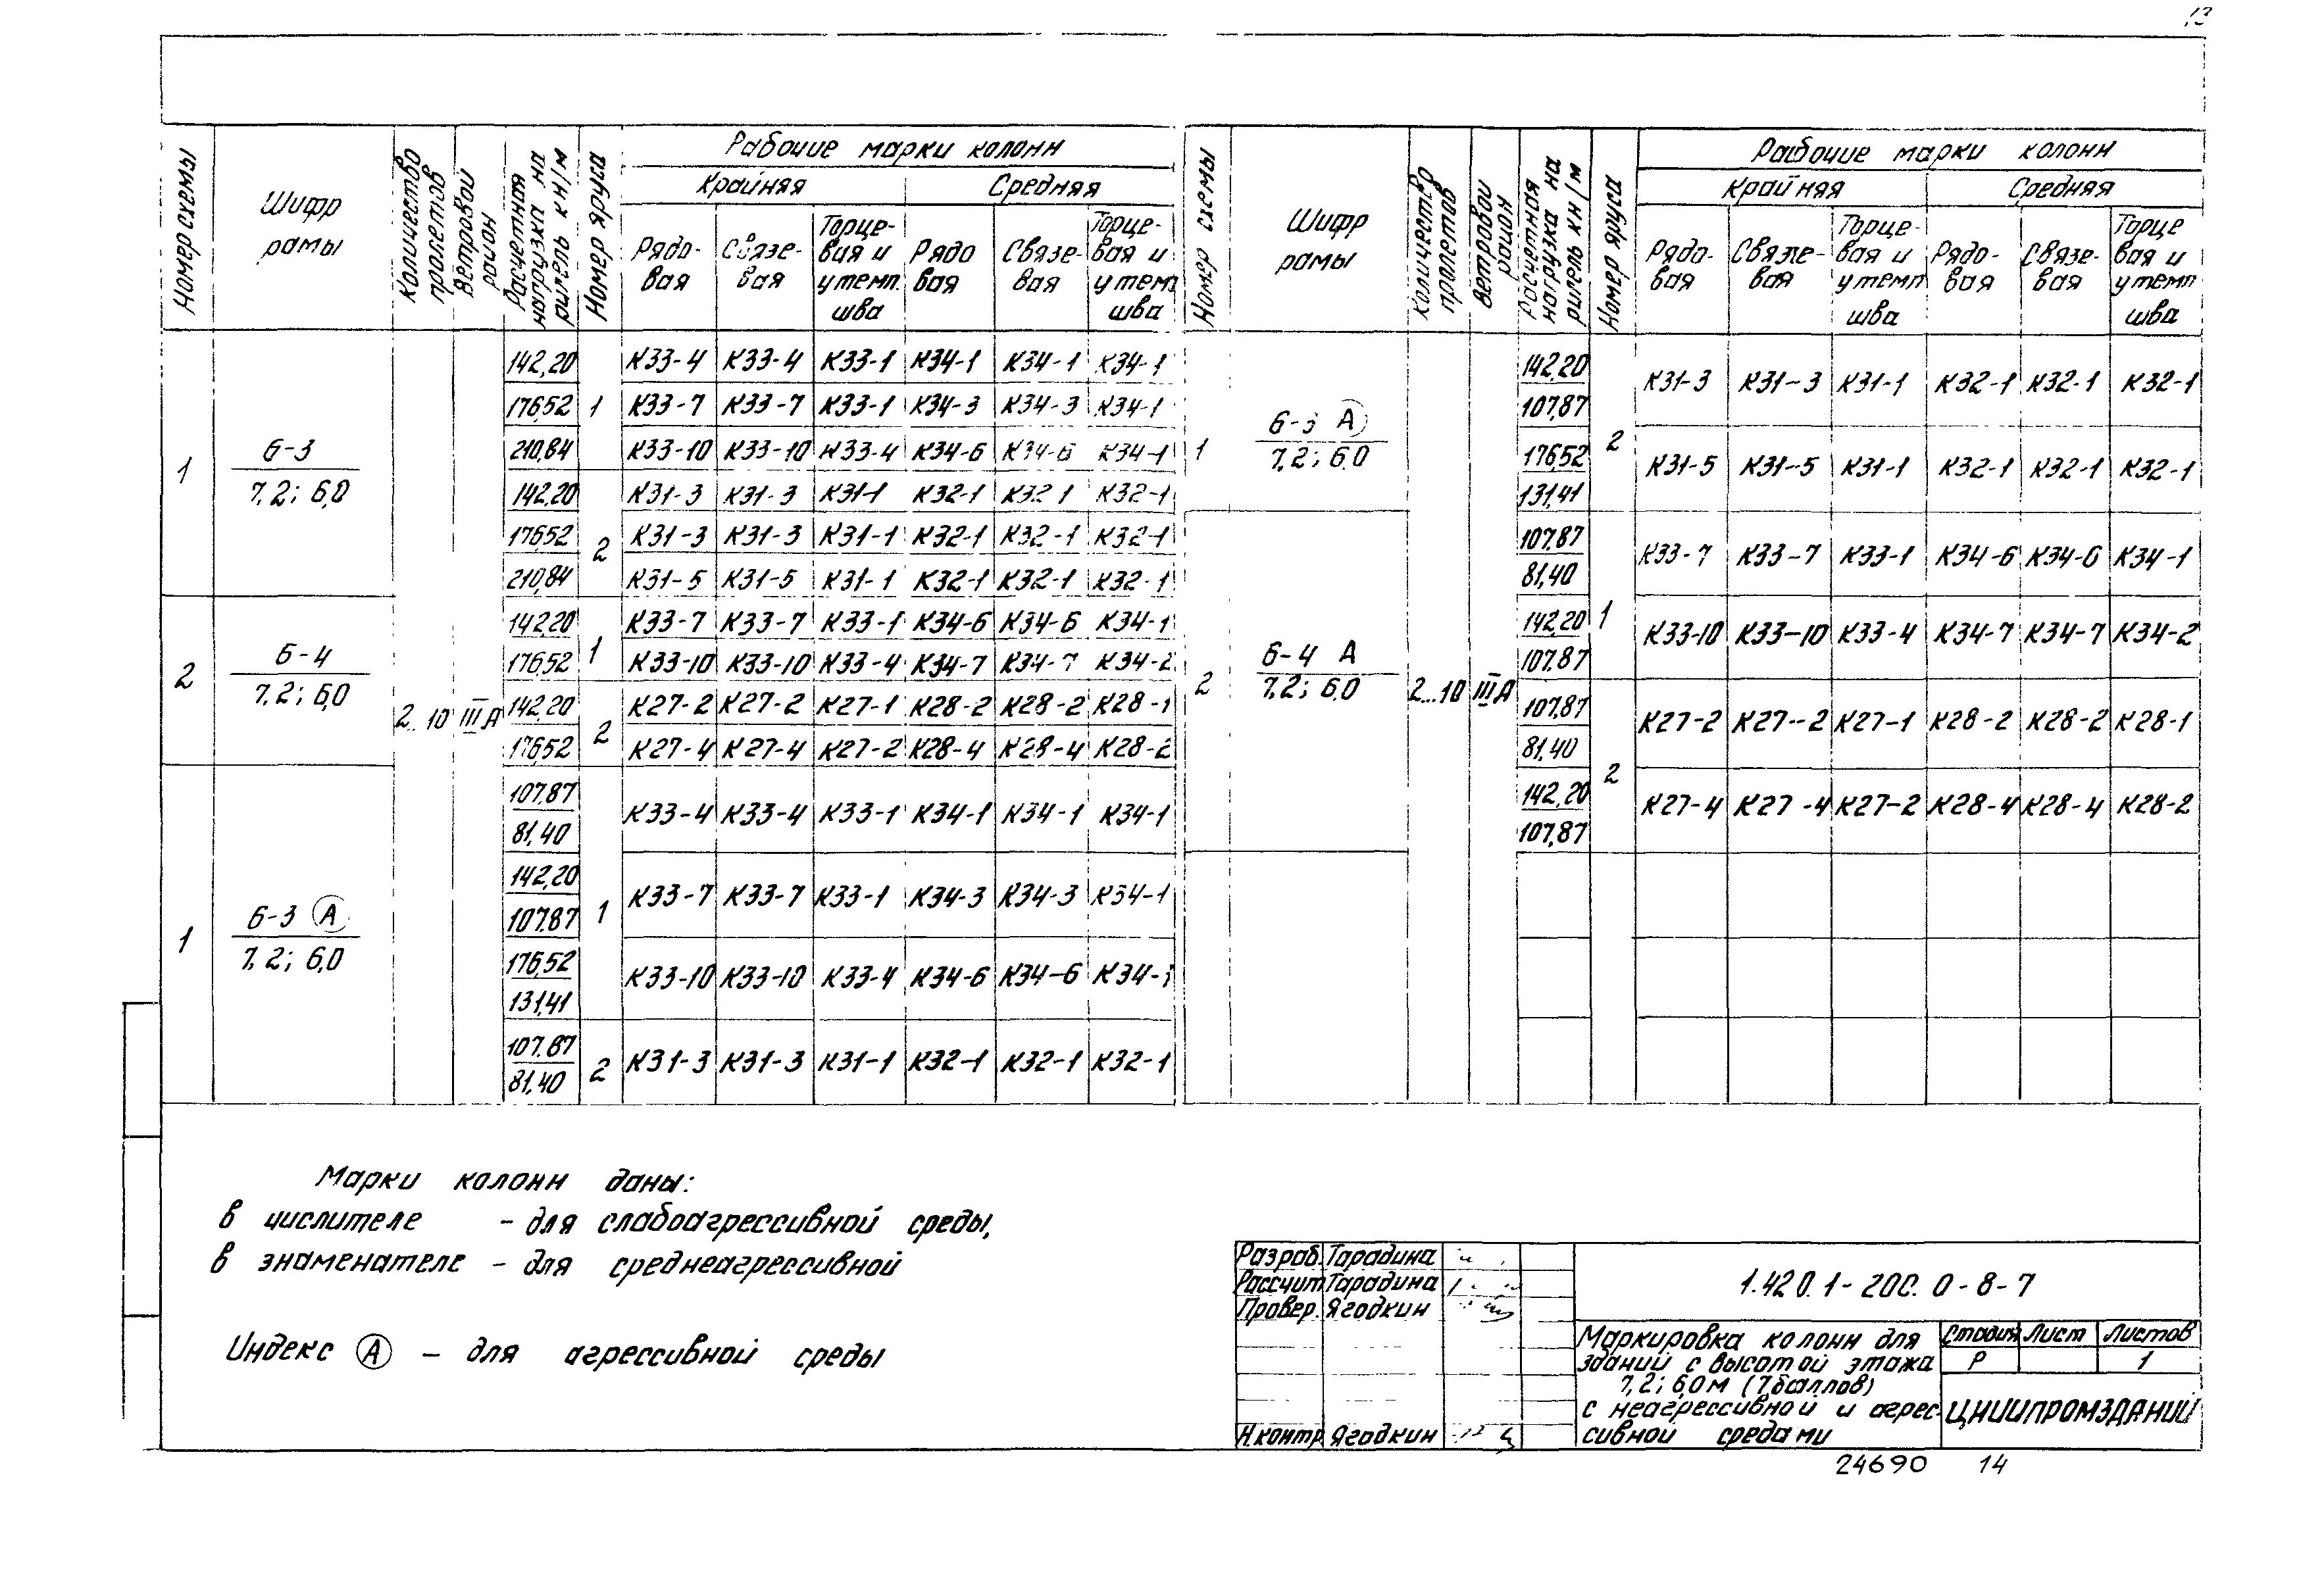 13
Номер схемы
Шифр рамы
Количество пролетов
Ветровой район
Расчетная нагрузка на ригель кн/м
Номер яруса
Рабочие марки колонн
Крайняя Средняя
Рядовая Связевая Торцевая и у темп шва Рядовая Связевая Торцевая и у темп шва
1 6-3 7,2; 6,0
2...10 III А
142,20 1 К33-4 К33-4 К33-1 К34-1 К34-1 К34-1
176,52 К33-7 К33-7 К33-1 К34-3 К34-3 К34-1
210,84 К33-10 К33-10 К33-4 К34-6 К34-6 К34-1
142,20 2 К31-3 К31-3 К31-1 К32-1 К32-1 К32-1
176,52 К31-3 К31-3 К31-1 К32-1 К32-1 К32-1
210,84 К31-5 К31-5 К31-1 К32-1 К32-1 К32-1
2 6-4 7,2; 6,0
142,20 1 К33-7 К33-7 К33-1 К34-6 К34-6 К34-1
176,52 К33-10 К33-10 К33-4 К34-7 К34-7 К34-2
142,20 2 К27-2 К27-2 К27-1 К28-2 К28-2 К28-1
176,52 К27-4 К27-4 К27-2 К28-4 К28-4 К28-2
1 6-3 А 7,2; 6,0
107,87 81,40 1 К33-4 К33-4 К33-1 К34-1 К34-1 К34-1
142,20 107,87 К33-7 К33-7 К33-1 К34-3 К34-3 К34-1
176,52 131,41 К33-10 К33-10 К33-4 К34-6 К34-6 К34-1
107,87 81,40 2 К31-3 К31-3 К31-1 К32-1 К32-1 К32-1
Номер схемы
Шифр рамы
Количество пролетов
Ветровой район
Расчетная нагрузка на ригель кн/м
Номер яруса
Рабочие марки колонн
Крайняя Средняя
Рядовая Связевая Торцевая и у темп шва Рядовая Связевая Торцевая и у темп шва
1 6-3 А 7,2; 6,0
2...10 III А
142,20 107,87 2 К31-3 К31-3 К31-1 К32-1 К32-1 К32-1
176,52 131,41 К31-5 К31-5 К31-1 К32-1 К32-1 К32-1
2 6-4 А 7,2; 6,0
107,87 81,40 1 К33-7 К33-7 К33-1 К34-6 К34-6 К34-1
142,20 107,87 К33-10 К33-10 К33-4 К34-7 К34-7 К34-2
107,87 81,40 2 К27-2 К27-2 К27-1 К28-2 К28-2 К28-1
142,20 107,87 К27-4 К27-4 К27-2 К28-4 К28-4 К28-2
Марки колонн даны:
в числителе - для слабоагрессивной среды,
в знаменателе - для среднеагрессивной
Индекс А - для агрессивной среды
Разраб. Тарадина
Рассчит Тарадина
Провер. Ягодкин
Н.контр Ягодкин
1.420.1-20С. 0-8-7
Маркировка колонн для
зданий с высотой этажа
7,2; 6,0 м (7 баллов)
с неагрессивной и агрес-
сивной средами
Стадия Лист Листов
Р 1
ЦНИИПРОМЗДАНИЙ
24690 14